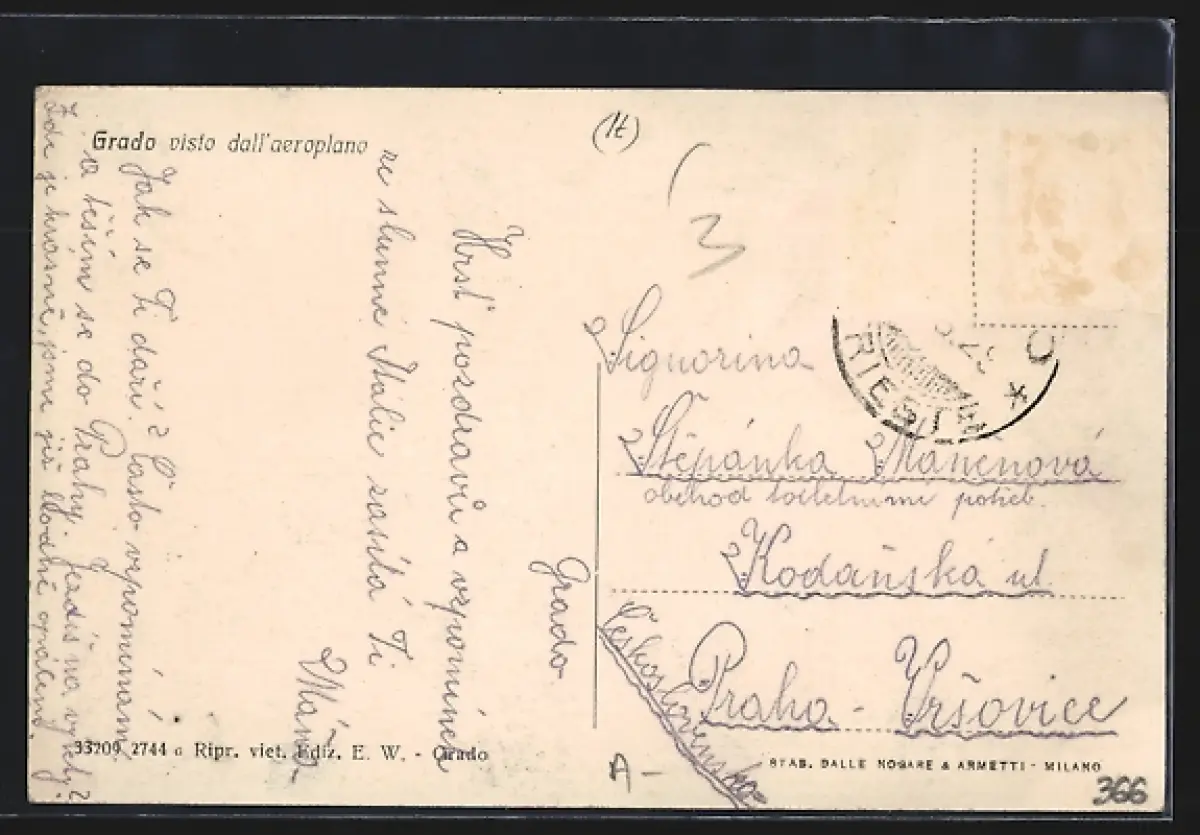 Grado visto dall'aeroplano
(It)
Grado.
Hrst pozdravů a vzpomínek
ze slunné Itálie zasílá Ti
Máňa.
Jak se Ti daří? Často vzpomínám
a těším se do Prahy. Jezdíš na výlety?
Zde je krásně, jsme již hodně opálené.
Signorina
Štěpánka Manenová
obchod toiletními potřeb.
Kodaňská ul.
Praha - Vršovice
Československo
RIESTE
33209 2744 a Ripr. viet. Ediz. E. W. - Grado
STAB. DALLE NOGARE & ARMETTI - MILANO
A -
366